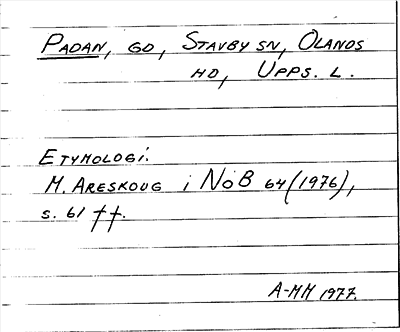 PADAN, GD, STAVBY SN, OLANDS
HD, UPPS. L.
ETYMOLOGI:
M. ARESKOUG i NoB 64 (1976),
s. 61 ff.
A-MM 1977.